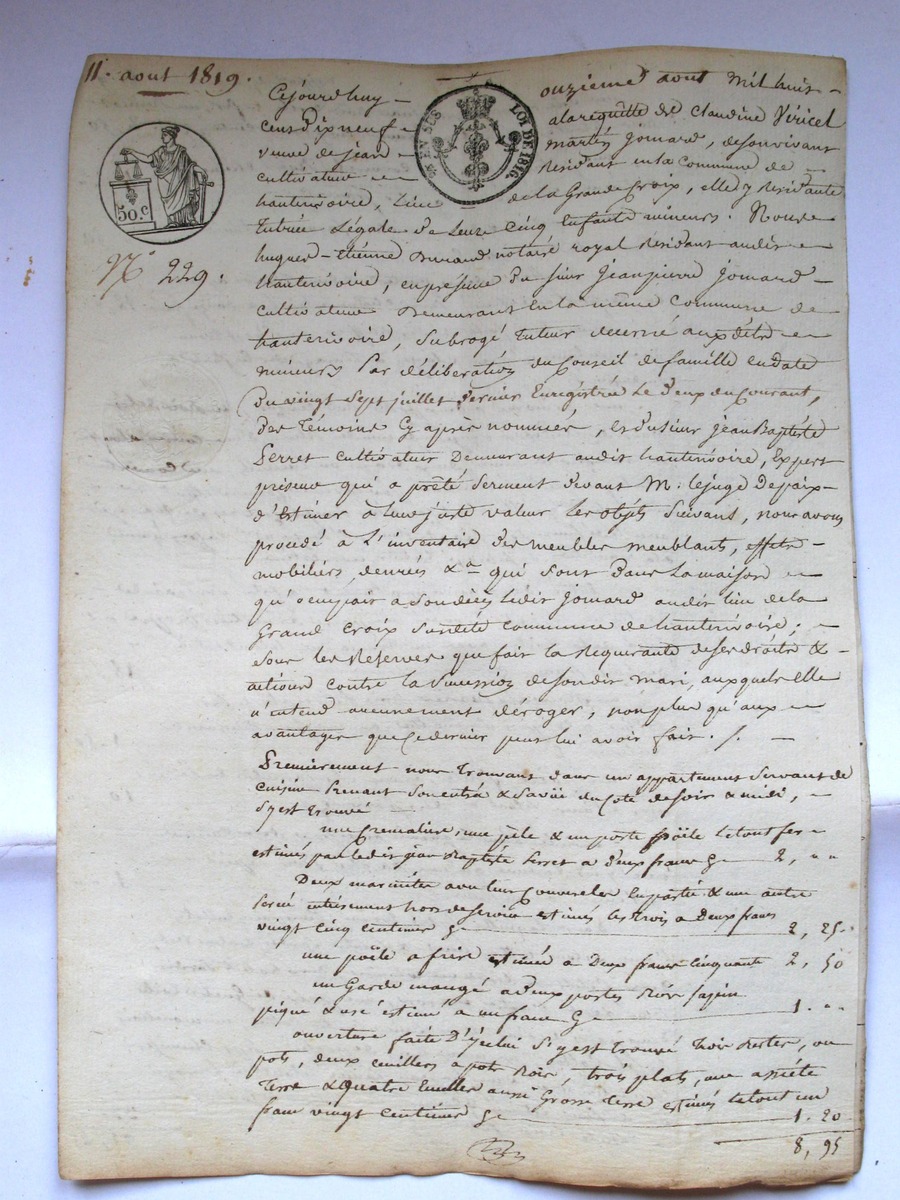 11. aout 1819.
Cejourdhuy onzieme aout mil huit
cent dix neuf alarequête de Claudine Viricel
veuve de jean martin jomard, desonvivant
cultivateur Residant en la Commune de
hauterivoire, Lieu de la Grande Croix, elle y Residante
Tutrice Légale de leurs Cinq Enfants mineurs. Nous
hugues-étienne Durand notaire royal Residant audit
hauterivoire, en présence du sieur jeanpierre jomard
cultivateur Demeurant en la même Commune de
hauterivoire, Subrogé tuteur décerné auxdits
mineurs Par délibération du Conseil de famille endate
Du vingt Sept juillet dernier Enregistrée Le Deux du Courant,
Des Témoins Cy après nommés, et du sieur jeanBaptiste
Serret cultivateur Demeurant audit hauterivoire, Expert
priseur qui a prêté Serment devant M. lejuge depaix
d'Estimer à leur juste valeur les objets Suivant, nous avons
procédé à L'inventaire des meubles meublants, effets
mobiliers, denrées &a qui Sont Dans la maison
qu'occupait a Sondécès ledit jomard audit lieu de la
Grand Croix Susdite commune de hauterivoire;
Sous les Réserves que fait la Requerante de ses droits &
actions contre la Succession de sondit mari, auxquels elle
n'entend aucunement déroger, non plus qu'aux
avantages que ce dernier peut lui avoir fait. /.
Premièrement nous trouvant dans un appartement Servant de
cuisine Prenant Son entrée & Sa vue du Coté de soir & midi,
S'y est trouvé
une Cremaliere, une pèle & un porte poële le tout fer
estimés par ledit jean Baptiste Serret a deux francs Cy 2, " "
Deux marmites avec leur Couvercles en parti & une autre
percée entièrement hors de service estimés les trois a Deux francs
vingt cinq centimes Cy 2, 25.
une poële a frire estimée a Deux francs Cinquante 2, 50
un Garde mangé a deux portes Bois Sapin
piqué & usé estimé a un franc Cy 1. "
ouverture faite D'icelui S'y est trouvé trois
pots, deux cuillers a pots Bois, trois plats, une assiete
terre & Quatre aussi Grosse terre estimés letout un
franc vingt Centimes Cy 1. 20
8, 95
EN SUS
LOI DE 1816
50.c
No 229.